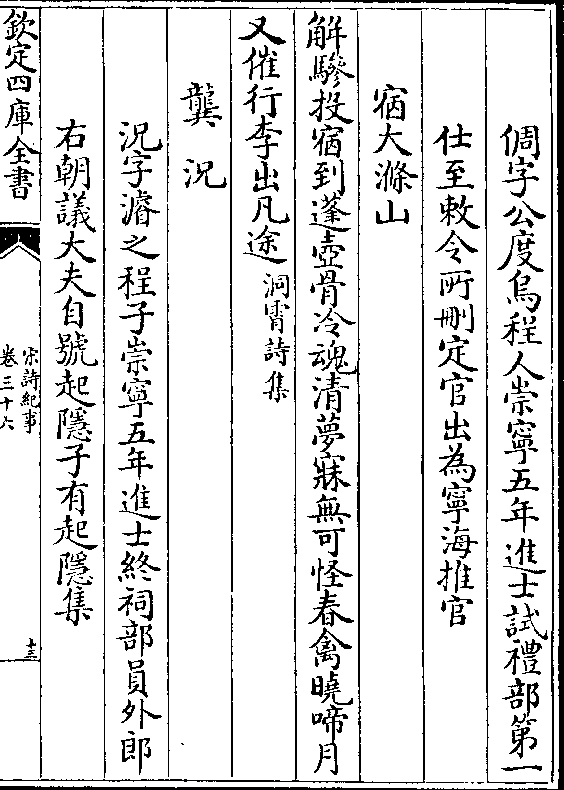 倜字公度烏程人崇寧五年進士試禮部第一
仕至敕令所刪定官出為寧海推官
宿大滌山
解驂投宿到蓬壺骨冷魂清夢寐無可怪春禽曉啼月
又催行李出凡途洞霄詩集
龔況
況字濬之程子崇寧五年進士終祠部員外郎
右朝議大夫自號起隱子有起隱集
欽定四庫全書
宋詩紀事
卷三十六
十三